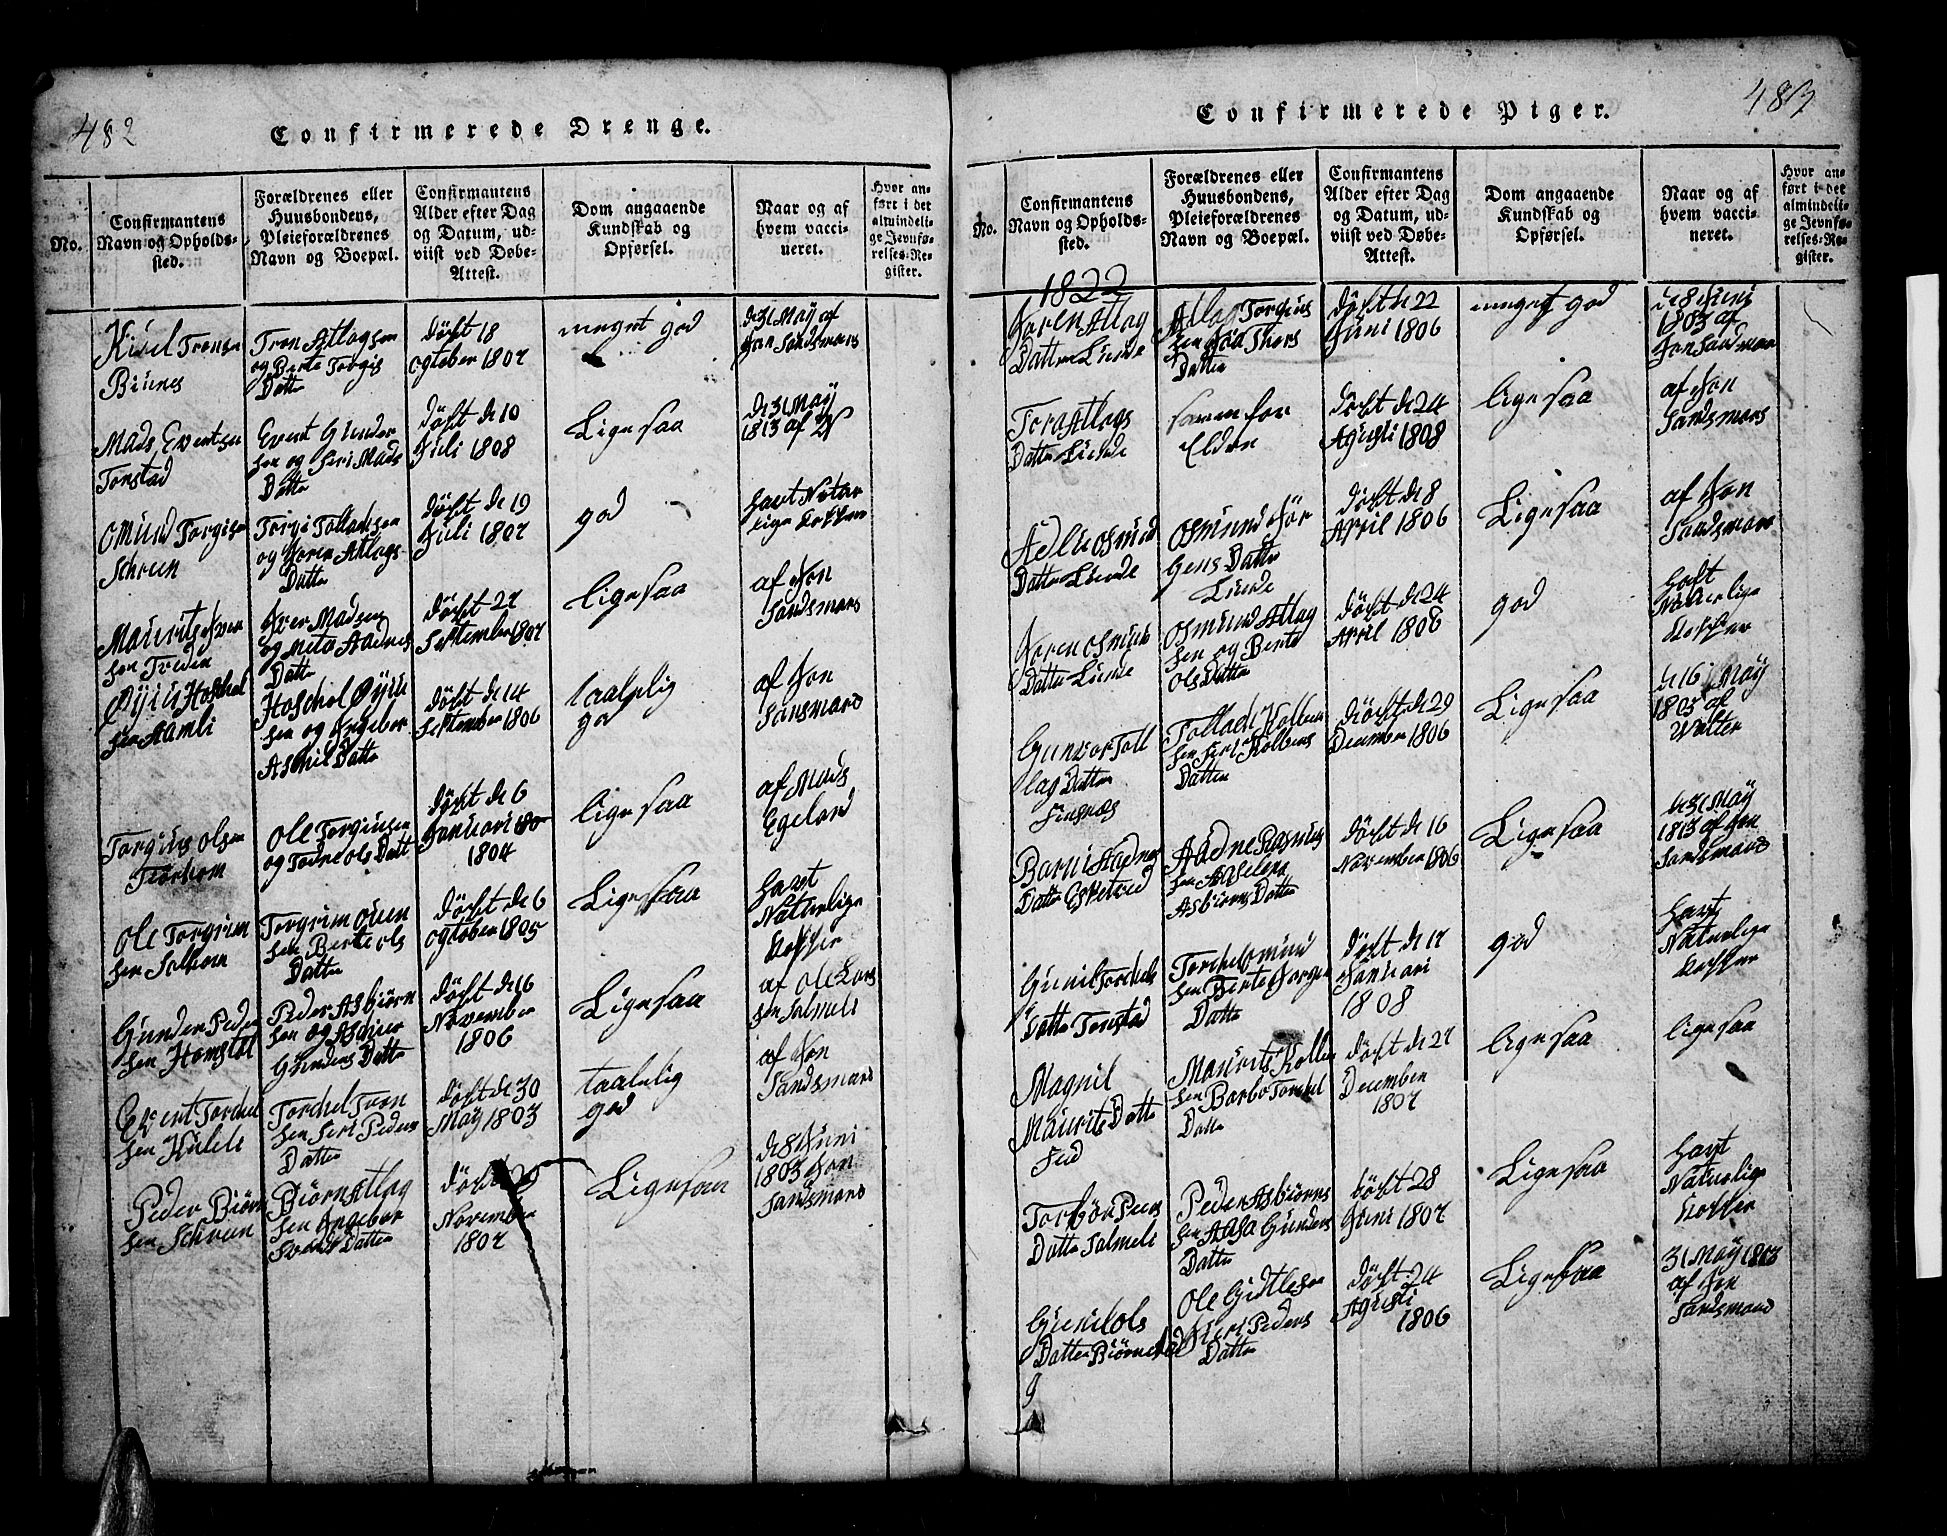 482
Confirmerede Drenge.
No.
Confirmantens
Navn og Opholds-
sted.
Forældrenes eller
Huusbondens,
Pleieforældrenes
Navn og Boepæl.
Confirmantens
Alder efter Dag
og Datum, ud-
viist ved Døbe-
Attest.
Dom angaaende
Kundskab og
Opførsel.
Naar og af
hvem vacci-
neret.
Hvor an-
ført i det
almindeli-
ge Jevnfø-
relses-Re-
gister.
Tronsen
Biunes
Tron Atlagsen
og Berte Torgis
Datter
døbt 18
ogtober 1807
meget god
d 31 May af
Jon Sandsmark
Mads Eventsen
Tonstad
Event Gunder
sen og Seri Mads
Datter
døbt de 10
Juli 1808
Ligesaa
de 31 May
1813 af
Omund Torgisen
Schreen
Torgi Tolladsen
og Joren Atlags
Datter
døbt de 19
Juli 1807
god
havt Natur
lige Kopper
Maurits Iver
sen Tredin
Iver Madsen
og Meta Aadnes
Datter
døbt 27
September 1807
ligesaa
af Jon
Sandsmark
Øyiu Hoschel
sen Aamli
Hoschel Øyiu
sen og Ingebor
Asbiil Datter
døbt de 14
September 1806
taalelig
god
af Jon
Sansmark
Torgius Olsen
Fiorhom
Ole Torgiusen
og Todne Ols Datt
døbt de 6
Januari
1804
ligesaa
af Mads
Egeland
Ole Torgrim
sen Salhom
Torgrim
sen Berte Ols
Datter
døbt de 6
ogtober 1805
Ligesaa
havt
Naturlige
Kopper
Gunder Peder
sen Homstøl
Peder Asbiørn
sen og
Gunders Datter
døbt de 16
November
1806
Ligesaa
af Ole Lars
sen Salmeli
Event Torchel
sen
Torchel Tron
sen Seri Peders
Datter
døbt de 30
May 1803
taalelig
god
af Jon
Sandsmark
Peder Biørn
sen Schreen
Biørn Atlag
sen Ingebor
Datter
døbt
November
1807
Ligesaa
de 8 Juni
1803 Jon
Sandsmark
483
Confirmerede Piger.
No.
Confirmantens
Navn og Opholds-
sted.
Forældrenes eller
Huusbondens,
Pleieforældrenes
Navn og Boepæl.
Confirmantens
Alder efter Dag
og Datum, ud-
viist ved Døbe-
Attest.
Dom angaaende
Kundskab og
Opførsel.
Naar og af
hvem vacci-
neret.
Hvor an-
ført i det
almindeli-
ge Jevnfø-
relses-Re-
gister.
1822
Joren Atlag
Datter Lunde
Atlag Torgius
sen Thors
Datter
døbt de 22
Juni 1806
meget god
de 8 Juni
1803 af
Jon Sandmark
Tora Atlags
Datter Lunde
samme for
Eldre
døbt de 24
Agusti 1808
ligesaa
af Jon
Sandsmark
Adlu Osmund
Datter Lunde
Osmund Jør
gens Datter
Lunde
døbt de 8
April 1806
Ligesaa
af Jon
Sandsmark
Joren Osmund
Datter Lunde
Osmund Atlag
sen og Berte
Ols Datter
døbt de 24
April 1806
god
haft
Naturlige
Kopper
Gunvor Toll
lag Datter
Finsnæs
Tollack Kolben
sen Seri Kolbens
Datter
døbt de 29
December 1806
Ligesaa
de 16 May
1803 af
Walter
Barni Aadnes
Datter Eskelred
Aadne Rasmus
sen
Asbiørns Datter
døbt de 16
November 1806
Ligesaa
de 31 May
1813 af Jon
Sandsmark
Gunil Torchels
Datter Tonstad
Torchel Omund
sen Berte Jorgen
Datter
døbt de 17
Januari
1808
god
havt
Naturlige
Kopper
Magnil
Maurits Datter
Fed
Maurits Kolben
sen Barbo Torchel
Datter
døbt de 27
December
1807
ligesaa
ligesaa
Torbør Peders
Datter Salmeli
Peder Asbiørns
sen Aasa Gunders
Datter
døbt 28
Juni 1807
Ligesaa
havt
Naturlige
Kopper
Gunild Ols
Datter
Ole Gunttesen
Seri Peders
Datter
døbt 24
Agusti
1806
Ligesaa
31 May 1813
af Jon
Sandsmark
9